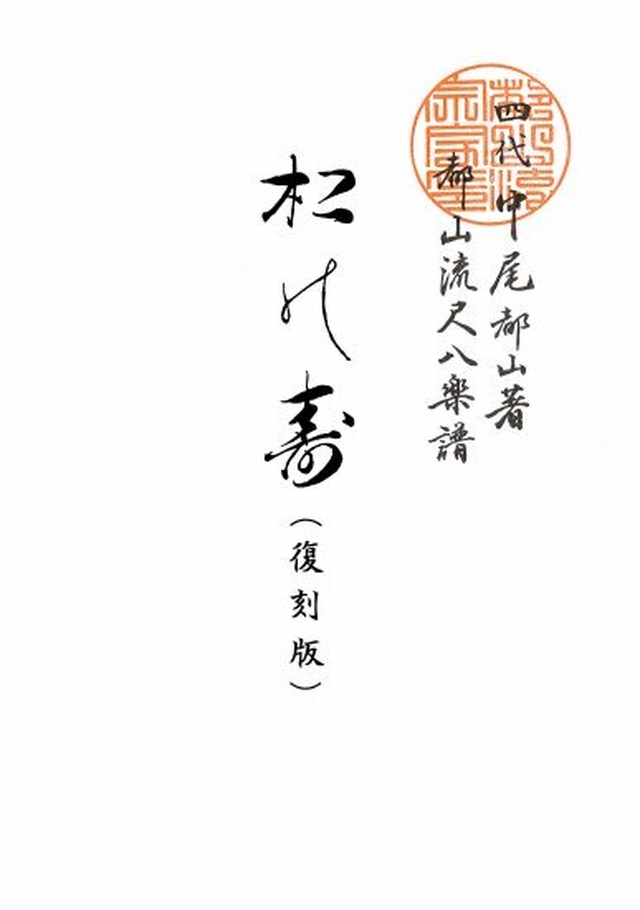 四代中尾都山著
都山流尺八楽譜
松の寿
(復刻版)